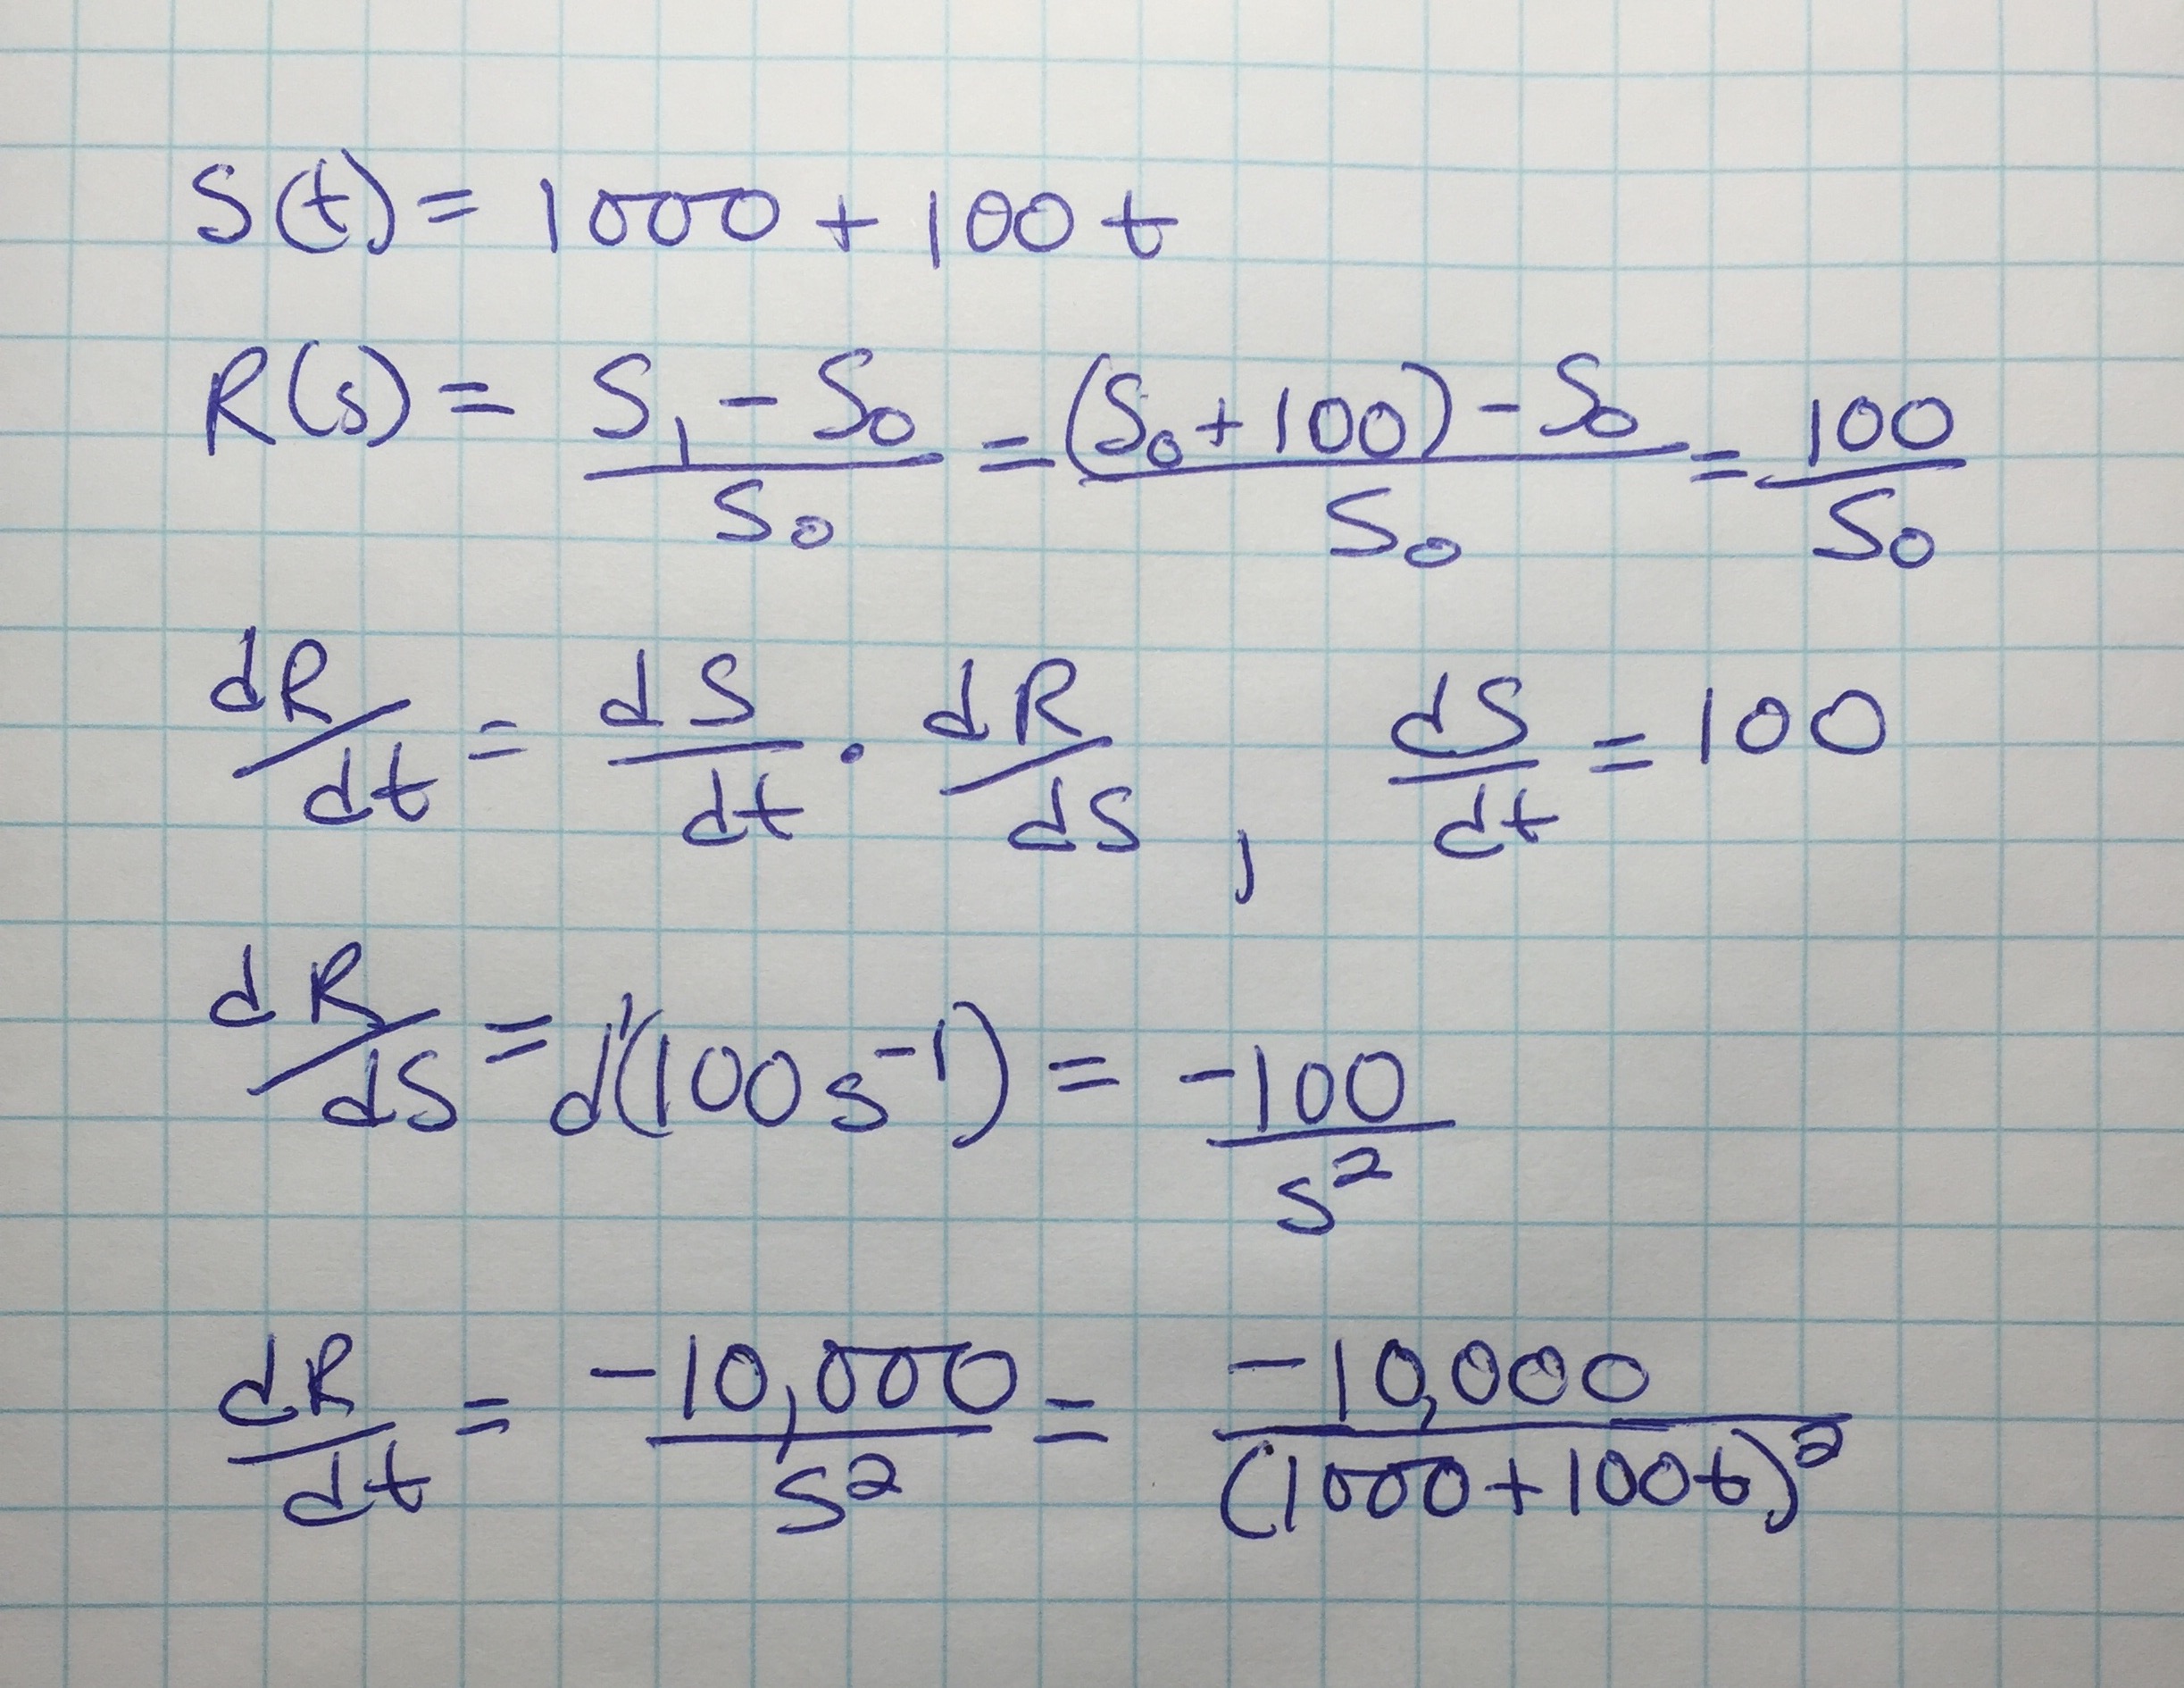 S(t) = 1000 + 100t
R(s) = (S₁ - S₀)/S₀ = ((S₀ + 100) - S₀)/S₀ = 100/S₀
dR/dt = dS/dt · dR/dS , dS/dt = 100
dR/dS = d'(100s⁻¹) = -100/s²
dR/dt = -10,000/s² = -10,000/(1000+100t)²